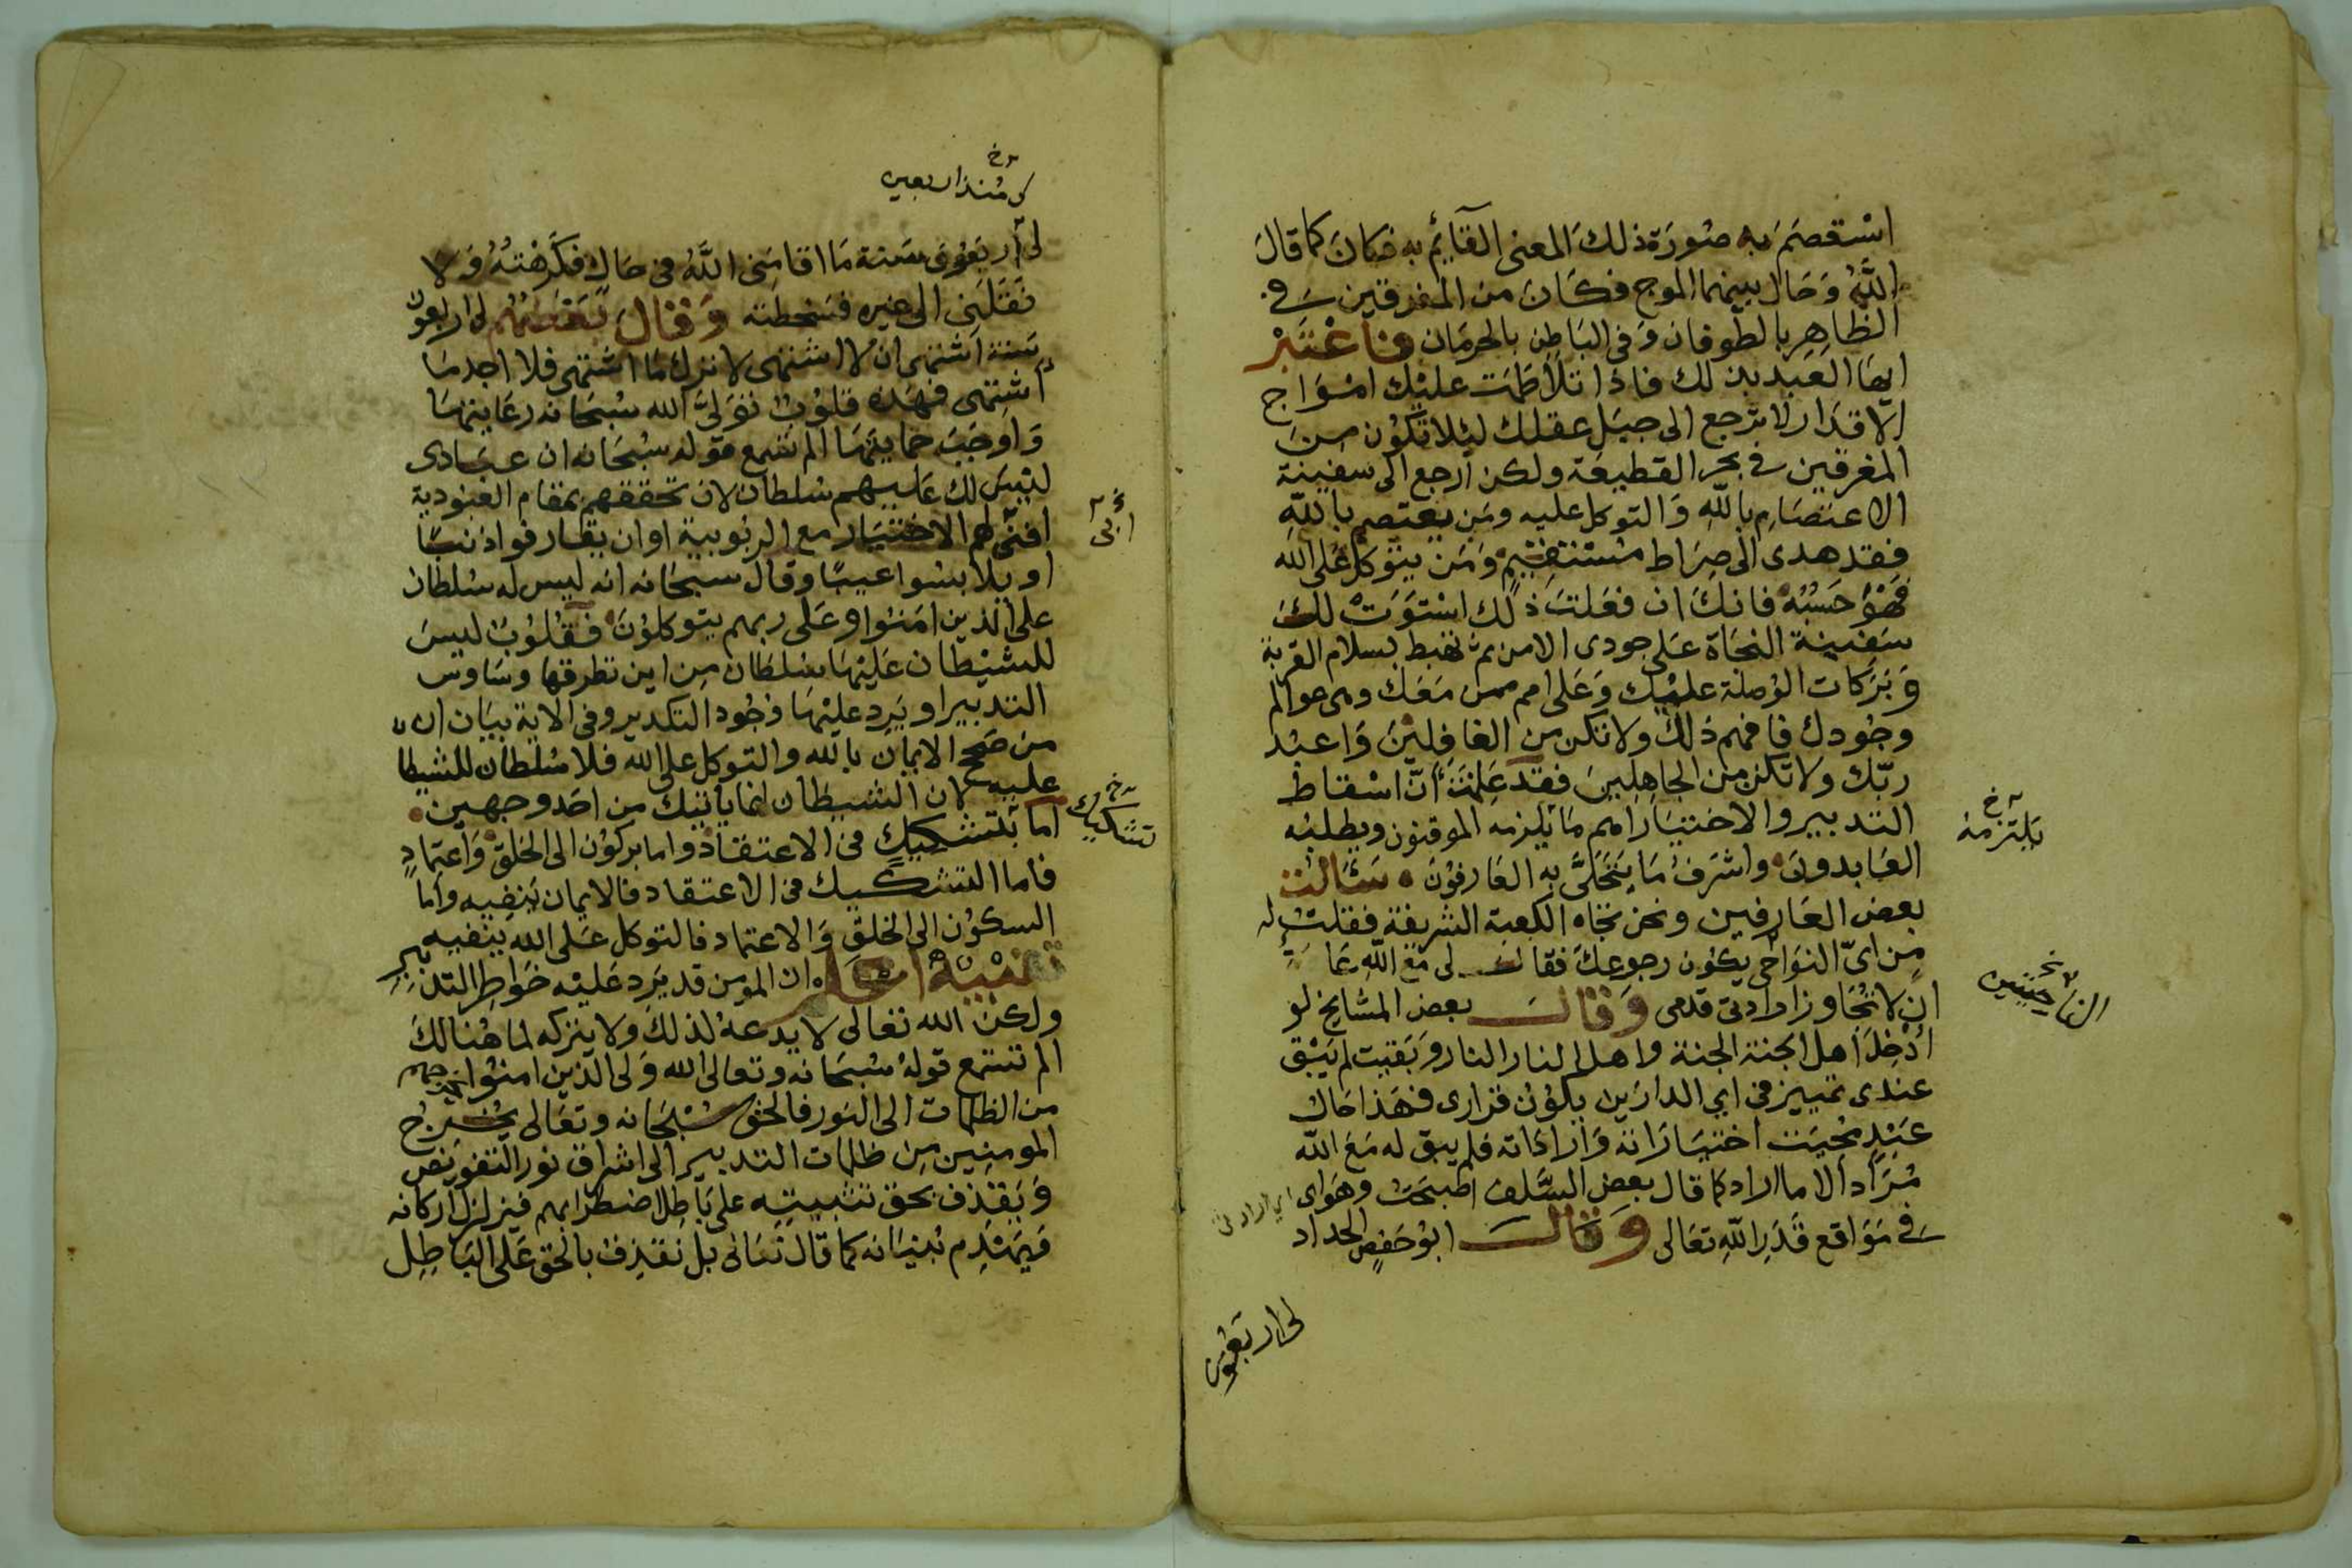 استعصم به صورة ذلك المعنى القائم به فكان كما قال
الله وَحَال بينهما الموج فكان من المغرقين في
الظاهر بالطوفان وَفي الباطن بالحرمان فاعتبر
ايها العبد بذلك فاذا تلاطمت عليك امواج
الاقدار لا ترجع الى جبل عقلك لئلا تكون من
المغرقين في بحر القطيعة ولكن ارجع الى سفينة
الاعتصام بالله وَالتوكل عليه ومن يعتصم بالله
فقد هدى الى صراط مستقيم وَمَن يتوكل على الله
فهو حسبه فانك ان فعلت ذلك استوت لك
سفينة النجاة على جودى الامن ثم تهبط بسلام القربة
وَبَرَكات الوُصلة عليك وَعَلى امم ممن معك وهى عوالم
وجُودك فافهم ذلك ولا تكن من الغافلين وَاعبد
ربّك ولا تكن من الجاهلين فقد علمت أنّ اسقاط
التدبير والاختيار اهم ما يلزمه الموقنون ويطلبه
العَابدون واشرف ما يتحلىّ به العَارفون سَالت
بعض العَارفين ونحن تجاه الكعبة الشريفة فقلت له
من اىّ النواحى يكون رجوعك فقال لى مع الله عادة
ان لا تُجَاوز ارادتى قدمى وَقال بعض المشايخ لو
اُدْخِلَ اهل الجنة الجنة واهل النار النار وَبَقيت لم يَبْق
عندى تمييز فى اى الدارين يكون قرارى فهذا حَال
عَبْدٍ مُحِيَت اختيَارَاته وَارادَاته فلم يبق له مَعَ الله
مُرَاد الا ما اراد كما قال بعض السَّلف اصبحت وهَواى
فى مَوَاقع قَدَرِ الله تعَالى وَقال ابو حَفصٍ الحداد
يلتزمه خ
الناحيتين
لى اربعون
كى منذ اربعين خ
لى أربَعُون سَنة مَا اقامَنى اللَّهُ فى حَالٍ فكَرهْتُهُ وَلا
نَقَلَنِى الى غيره فسَخطته وَقالَ بَعْضُهُم لى اربعون
سنة اشتهى ان لا اشتهى لاترك مَا اشتهى فلا اجد مَا
اشتهى فهذه قلوبٌ تَوَلىَّ الله سُبحَانه رعَايتهَا
وَاوجَبَ حمايتهَا الم تسمع قوله سُبحَانه ان عبَادى
ليس لك عليهم سُلطان لان تحققهم بمقام العبودية
ابى لهم الاختيَار مع الربُوبية او ان يقارفوا ذنبًا
او يلابسُوا عيبًا وقال سبحَانه انه ليس له سُلطان
على الذين امَنُوا وعَلى ربهم يتوكلون فقُلوُبٌ ليسَ
للشيْطان عَليْهَا سُلطَان مِن اين تطرقها وسَاوس
التدبير او يَرد عليْهَا وُجُود التكدير وفى الاية بيَان ان
من صَحح الايمان بالله والتوكل على الله فلا سُلطان للشيطا
عليه لان الشيطان انما ياتيك من احَد وجهين
اما بتشكيك فى الاعتقاد واما بركون الى الخلق وَاعتمادٍ
فاما التشكيك فى الاعتقاد فالايمان يَنفيه وأما
السكون الى الخلق وَالاعتماد فالتوكل عَلى الله ينفيه
تنبيه اعلم ان المومن قد يَرد عَليْه خَوَاطر التدبير
ولكن الله تعالى لا يدعهُ لذلكَ ولا يتركه لما هُنالكَ
الم تسمع قوله سُبحَانه وتعالى الله وَلى الذين امنُوا يخرجهم
من الظلمات الى النور فالحق سُبْحَانه وتعَالى يُخْرِجُ
المومِنِين مِن ظلمات التدبير الى اشراق نور التفويض
وَيقذف بحق تثبيته على بَاطل اضطرابهم فيزلزل اركانه
فيَهْدِم بُنيَانه كما قال تعَالى بل نقذف بالحق عَلى البَاطِل
ابى خ
تشكيك خ